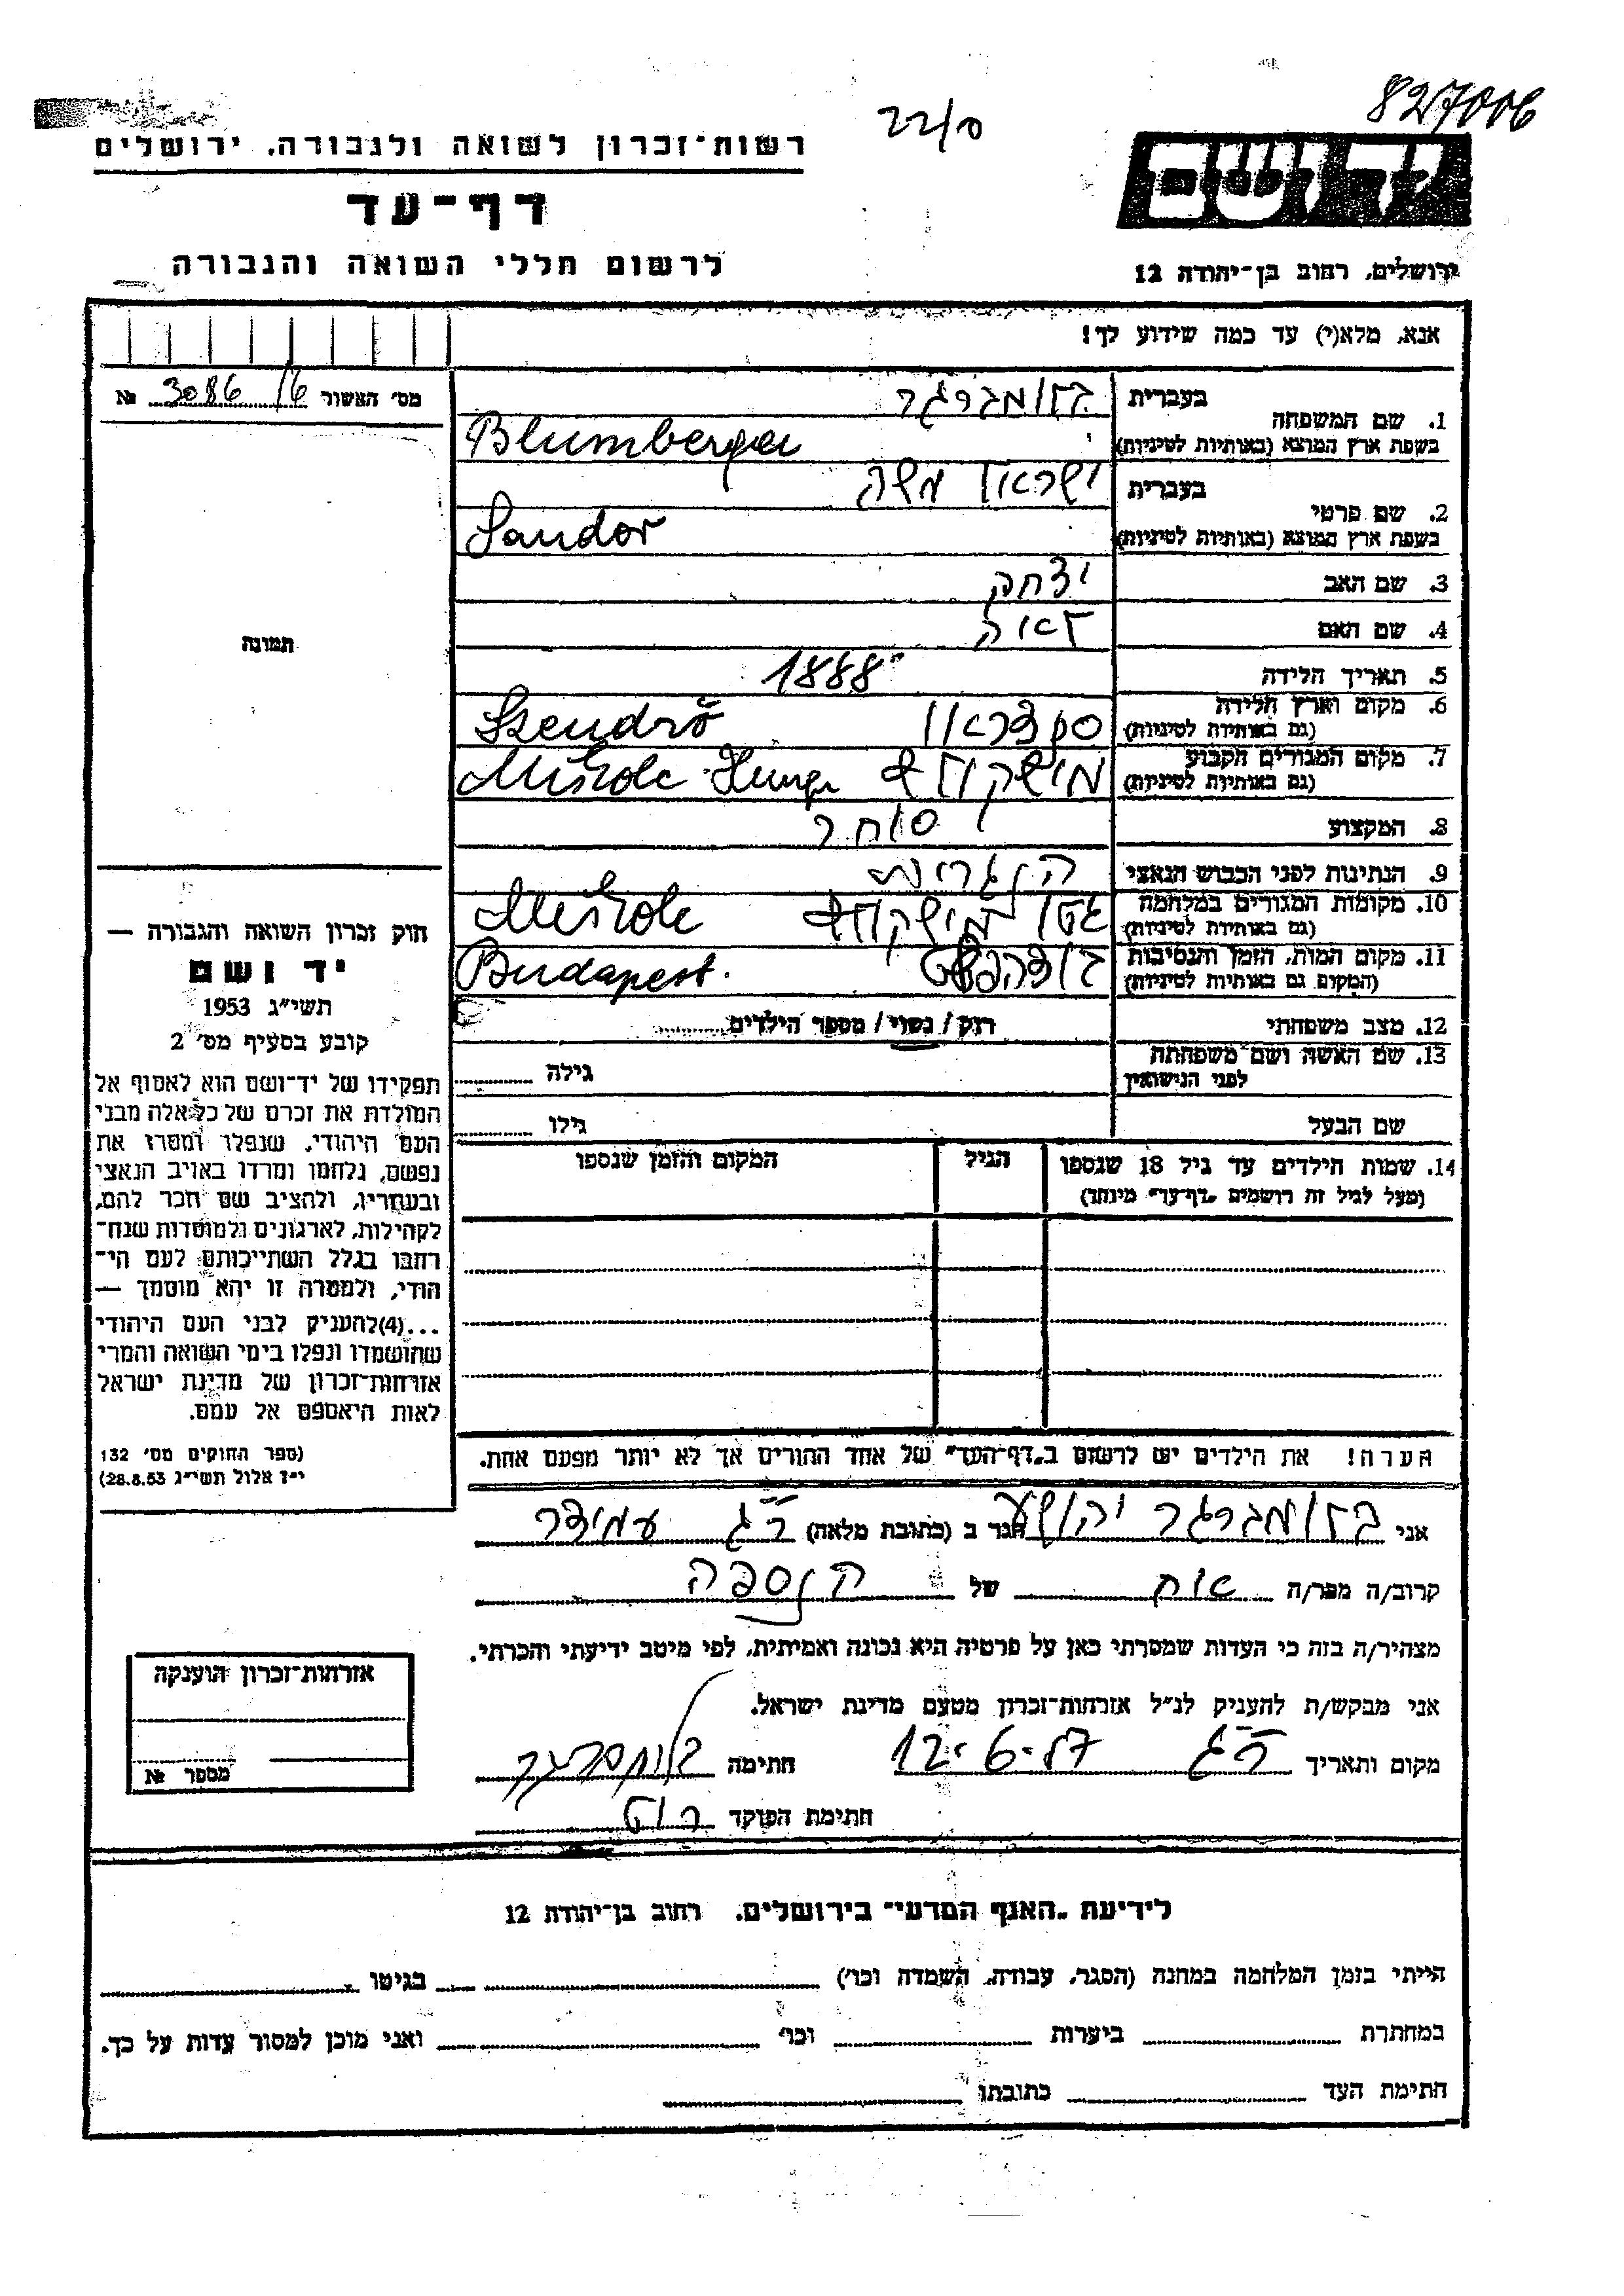 827006
22/0
רשות־זכרון לשואה ולגבורה, ירושלים
יד ושם
דף־עד
לרשום חללי השואה והגבורה
ירושלים, רחוב בן־יהודה 12
אנא, מלא(י) עד כמה שידוע לך!
מס׳ האשור 3086/6 №
תמונה
1. שם המשפחה
בעברית בלומברגר
בשפת ארץ המוצא (באותיות לטיניות) Blumberger
2. שם פרטי
בעברית ישראל משה
בשפת ארץ המוצא (באותיות לטיניות) Sandor
3. שם האב יצחק
4. שם האם לאה
5. תאריך הלידה 1888
6. מקום וארץ הלידה
(גם באותיות לטיניות) Szendrő
7. מקום המגורים הקבוע
(גם באותיות לטיניות) מישקולץ Miskolc
8. המקצוע סוחר
9. הנתינות לפני הכבוש הנאצי הונגרית
10. מקומות המגורים במלחמה
(גם באותיות לטיניות) גטו מישקולץ Miskolc
11. מקום המות, הזמן והנסיבות
(המקום גם באותיות לטיניות) בודפשט Budapest.
12. מצב משפחתי רווק / נשוי / מספר הילדים
13. שם האשה ושם משפחתה
לפני הנישואין גילה
שם הבעל גילו
14. שמות הילדים עד גיל 18 שנספו הגיל המקום והזמן שנספו
(מעל לגיל זה רושמים „דף־עד״ מיוחד)
חוק זכרון השואה והגבורה —
יד ושם
תשי״ג 1953
קובע בסעיף מס׳ 2
תפקידו של יד־ושם הוא לאסוף אל
המולדת את זכרם של כל אלה מבני
העם היהודי, שנפלו ומסרו את
נפשם, נלחמו ומרדו באויב הנאצי
ובעוזריו, ולהציב שם וזכר להם,
לקהילות, לארגונים ולמוסדות שנח־
רבו בגלל השתייכותם לעם הי־
הודי, ולמטרה זו יהא מוסמך —
...(4) להעניק לבני העם היהודי
שהושמדו ונפלו בימי השואה והמרי
אזרחות־זכרון של מדינת ישראל
לאות היאספם אל עמם.
(ספר החוקים מס׳ 132
י״ז אלול תשי״ג 28.8.53)
הערה! את הילדים יש לרשום ב„דף־העד״ של אחד ההורים אך לא יותר מפעם אחת.
אני בלומברגר יהושע הגר ב (כתובת מלאה) ר״ג עמידר
קרוב/ה מפר/ה אח של הנספה
מצהיר/ה בזה כי העדות שמסרתי כאן על פרטיה היא נכונה ואמיתית, לפי מיטב ידיעתי והכרתי.
אני מבקש/ת להעניק לנ״ל אזרחות־זכרון מטעם מדינת ישראל.
מקום ותאריך ר״ג 12.6.57 חתימה בלומברגר
חתימת הפוקד
אזרחות־זכרון הוענקה
מספר №
לידיעת „האגף המדעי״ בירושלים, רחוב בן־יהודה 12
הייתי בזמן המלחמה במחנה (הסגר, עבודה, השמדה וכו׳) בגיטו
במחתרת ביערות וכו׳ ואני מוכן למסור עדות על כך.
חתימת העד כתובתו